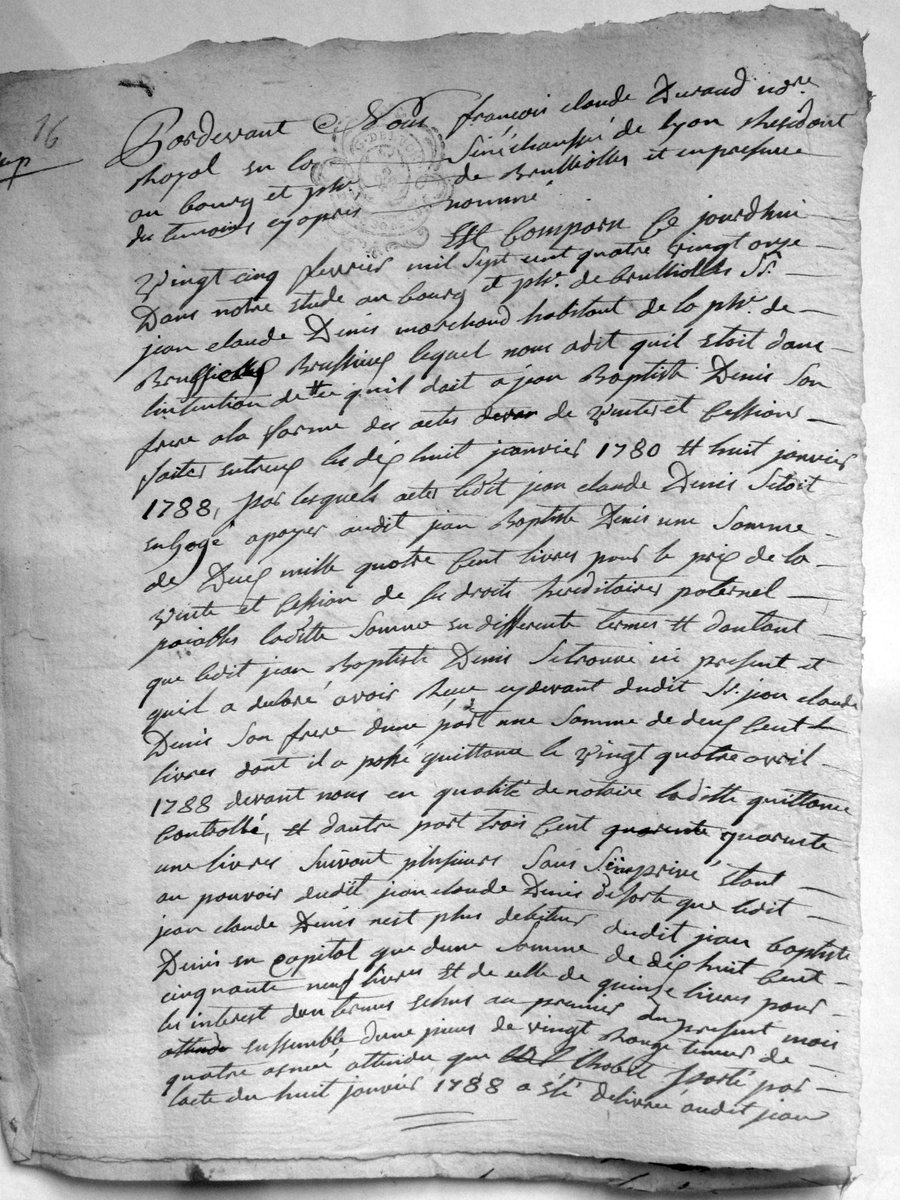 16
Pardevant Nous françois claude Durand no.re
Royal en la Sénéchaussée de Lyon Residant
au bourg et ph.e de Brullioles et en presence
du temoins cyapres nommé
Est Comparu Ce jourdhui
Vingt cinq fevrier mil sept cent quatre vingt onze
Dans notre etude au bourg et ph.e de brullioles Sr.
jean claude Denis marchand habitant de la ph.e de
Brussieug lequel nous a dit quil etoit dans
lintention de quil doit a jean Baptiste Denis Son
frere a la forme des actes de Vente et Cession
faites entreux les dix huit janvier 1780 et huit janvier
1788, par lesquels actes ledit jean claude Denis Setoit
engagé a payer audit jean Baptiste Denis une Somme
de Deux mille quatre Cent livres pour le prix de la
Vente et Cession de Ses droits hereditaires paternel
paiables laditte Somme en differents termes et dautant
que ledit jean Baptiste Denis Se trouve ici present et
quil a declaré avoir Reçu cy devant dudit Sr. jean claude
Denis Son frere dune part une Somme de deux Cent
livres dont il a passé quittance le Vingt quatre avril
1788 devant nous en qualité de notaire laditte quittance
Controllée, et dautre part trois Cent quarente
une livres Suivant plusieurs Sous Seimprivé etant
au pouvoir dudit jean claude Denis De sorte que ledit
jean claude Denis nest plus debiteur dudit jean baptiste
Denis en Capital que dune Somme de dix huit Cent
cinquante neuf livres et de celle de quinze livres pour
les interest dont termes echus au premier du present mois
ensemble dune piece de vingt tenur de
quatre asnée attendu que porté par
lacte du huit janvier 1788 a eté delivrée audit jean